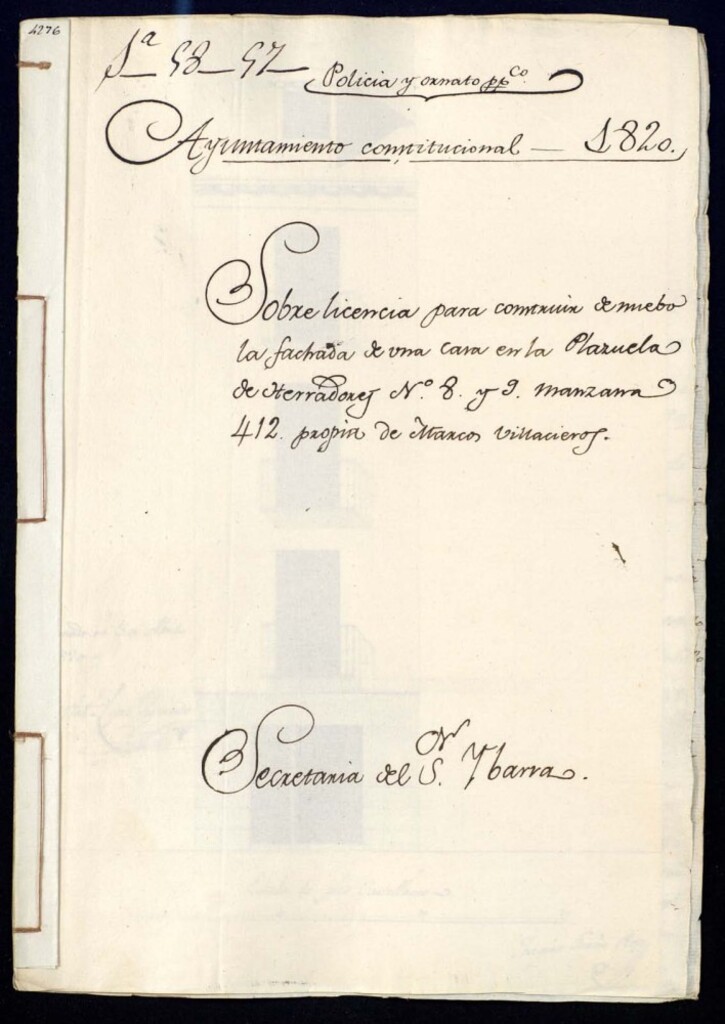 4276
1ª 58-57
Policia y ornato ppco.
Ayuntamiento constitucional — 1820.
Sobre licencia para construir de nuebo
la fachada de una casa en la Plazuela
de Herradores Nº 8. y 9. manzana
412. propia de Marcos Villacieros.
Secretaria del Sr. Ybarra.